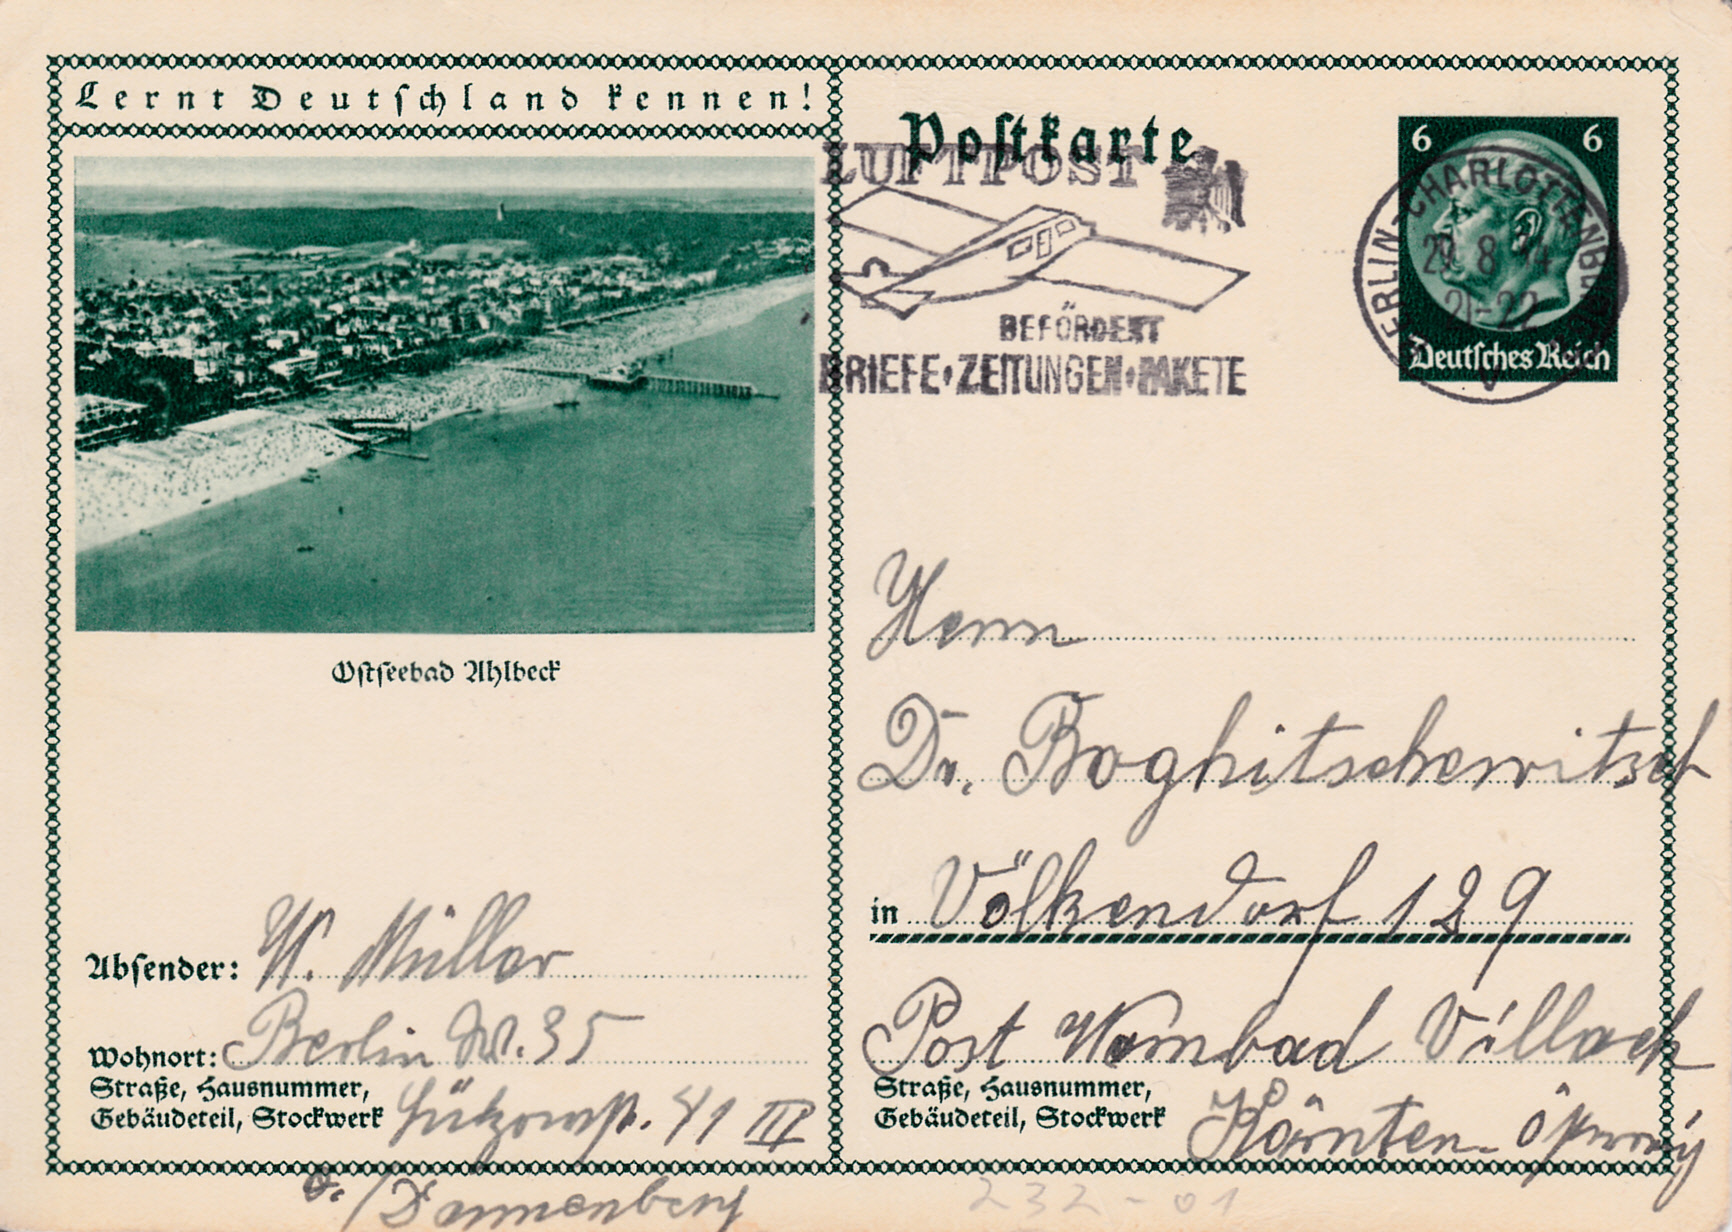 Lernt Deutschland kennen!
Ostseebad Ahlbeck
Absender: W. Müller
Wohnort: Berlin W. 35
Straße, Hausnummer,
Gebäudeteil, Stockwerk Lützowstr. 41 III
b./Dannenberg
Postkarte
LUFTPOST
BEFÖRDERT
BRIEFE·ZEITUNGEN·PAKETE
6 6
Deutsches Reich
BERLIN-CHARLOTTENBURG
29.8.34
21-22
Herrn
Dr. Boghitschewitsch
in Völkendorf 129
Post Warmbad Villach
Straße, Hausnummer,
Gebäudeteil, Stockwerk
Kärnten
232-01